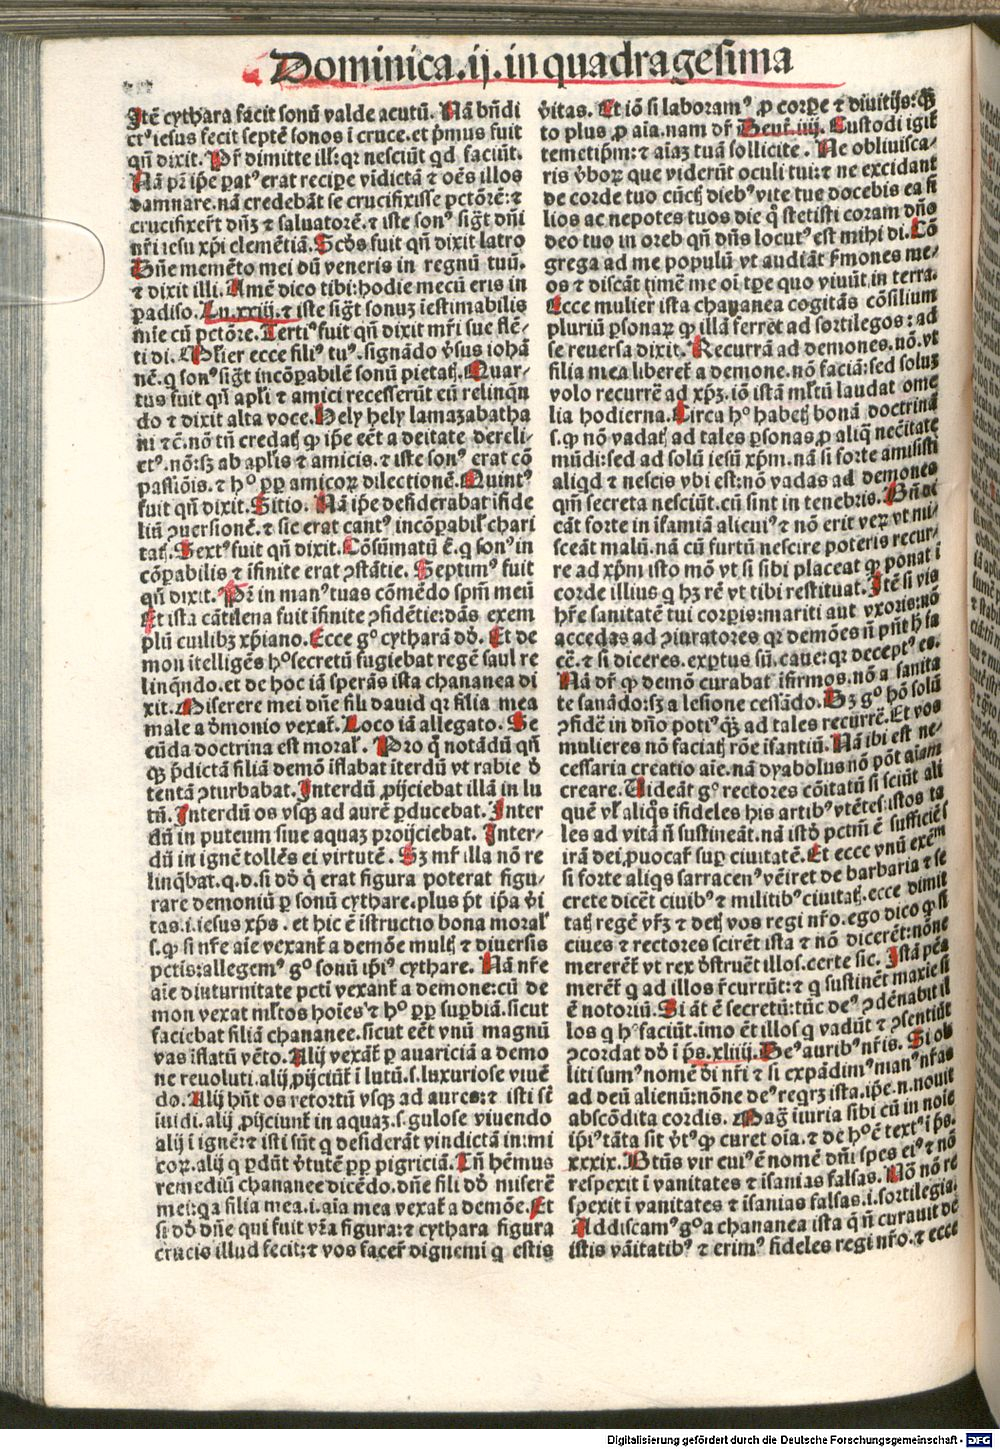 Dominica.ij.in quadragesima
Itē cythara facit sonū valde acutū. Nā bn̄di
ctꝰ iesus fecit septē sonos ī cruce.et pͥmus fuit
qn̄ dixit. Pr̄ dimitte ill̓: qꝛ nesciūt qd faciūt.
Nā pꝛī ip̄e patꝰ erat recipe vīdictā ⁊ oēs illos
damnare.nā credebāt se crucifixisse pctōꝛē:⁊
crucifixerūt dn̄ꝫ ⁊ saluatoꝛē.⁊ iste sonꝰ siḡt dn̄i
nr̄i iesu xp̄i clemētiā. Scd̓s fuit qn̄ dixit latro
Dn̄e memēto mei dū veneris in regnū tuū.
⁊ dixit illi. Amē dico tibi:hodie mecū eris in
padiso. Lu.xxiij.⁊ iste siḡt sonuꝫ īestimabilis
mīe cū pctōꝛe. Tertiꝰ fuit qn̄ dixit mr̄i sue flē-
ti di. Mulier ecce filiꝰ tuꝰ.signādo v̓sus iohā
nē.q sonꝰ siḡt incōpabilē sonū pietatꝭ. Quar-
tus fuit qn̄ apl̓i ⁊ amici recesserūt eū relinqͣn
do ⁊ dixit alta voce. Hely hely lamazabatha
ni ⁊ē.nō tn̄ credatꝭ ꝙ ip̄e eēt a deitate dereli-
ctꝰ.nō:sꝫ ab apl̓is ⁊ amicis.⁊ iste sonꝰ erat cō
passiōis.⁊ hº ꝓp̄ amicoꝝ dilectionē. Quintꝰ
fuit qn̄ dixit. Sitio. Nā ip̄e desiderabat īfide
liū ꝯuersionē.⁊ sic erat cantꝰ incōpabil̓ chari
tatꝭ. Sextꝰ fuit qn̄ dixit. Cōsūmatū ē.q sonꝰ in
cōpabilis ⁊ īfinite erat ꝯstātie. Septimꝰ fuit
qn̄ dixit. Pꝛ̄ in manꝰ tuas cōmēdo spm̄ meū
Et ista cātilena fuit īfinite ꝯfidētie:dās exem
plū cuilibꝫ xp̄iano. Ecce gº cytharā dd̓. Et de
mon ītelligēs hº secretū fugiebat regē saul re
linqͣndo.et de hoc iā sperās ista chananea di
xit. Miserere mei dn̄e fili dauid qꝛ filia mea
male a demonio vexat̓. Loco iā allegato. Se
cūda doctrina est moral̓. Pro qͦ notādū qn̄
qꝫ p̄dictā filiā demō īflabat īterdū vt rabie d̓
tentā ꝯturbabat. Interdū ꝓijciebat illā in lu
tū. Interdū os vsqꝫ ad aurē ꝓducebat. Inter
dū in puteum siue aquaꝫ proijciebat. Inter-
dū in ignē tollēs ei virtutē. Sꝫ mr̄ illa nō re
linqͣbat.q.d.si dd̓ qͥ erat figura poterat figu-
rare demoniū p sonū cythare.plus pt̄ ip̄a v̓i
tas.i.iesus xp̄s. et hic ē īstructio bona moral̓
s.ꝙ si nr̄e aīe vexant̓ a demōe multꝭ ⁊ diuersis
pctis:allegemꝰ gº sonū ip̄iꝰ cythare. Nā nr̄e
aīe diuturnitate pcti vexant̓ a demone:cū de
mon vexat ml̓tos hoīes ⁊ hº ꝓp̄ supbiā.sicut
faciebat filiā chananee.sicut eēt vnū magnū
vas īflatū vēto. Alij vexāt̓ p auariciā a demo
ne reuoluti.alij ꝓijciūt̓ ī lutū.s.luxuriose viuē
do. Alij hn̄t os retortū vsqꝫ ad aures:⁊ isti st̄
īuidi.alij ꝓijciunt̓ in aquaꝫ.s.gulose viuendo
alij ī ignē:⁊ isti sūt q desiderāt vindictā in:mi
coꝝ.alij q pdūt v̓tutē ꝓp̄ pigriciā. Tn̄ hēmus
remediū chananee dicēdo.dn̄e fili dd̓ miserē
mei:qa filia mea.i.aīa mea vexat̓ a demōe. Et
si dd̓ dn̄e qui fuit v̓ra figura:⁊ cythara figura
crucis illud fecit:⁊ vos facer̓ dignemi q estis
v̓itas. Et iō si laboramꝰ ꝓ corpe ⁊ diuitijs:qͣ
to plus ꝓ aīa.nam dr̄ Deut̓.iiij. Custodi igit̓
temetip̄m:⁊ aīaꝫ tuā sollicite. Ne obliuisca-
ris v̓boꝝ que viderūt oculi tui:⁊ ne excidant
de corde tuo cūctꝭ diebꝰ vite tue docebis ea fi
lios ac nepotes tuos die qͦ stetisti coram dn̄o
deo tuo in oreb qn̄ dn̄s locutꝰ est mihi di. Cō
grega ad me populū vt audiāt s̓mones me-
os ⁊ discāt timē me oī tp̄e quo viuūt in terra.
Ecce mulier ista chananea cogitās cōsilium
pluriū psonaꝝ ꝙ illā ferret ad sortilegos: ad
se reuersa dixit. Recurrā ad demones.nō.vt
filia mea liberet̓ a demone.nō faciā:sed soluꝫ
volo recurrē ad xp̄ꝫ.iō istā ml̓tū laudat ome
lia hodierna. Circa hº habetꝭ bonā doctrinā
s.ꝙ nō vadatꝭ ad tales psonas ꝓ aliq̄ necītate
mūdi:sed ad solū iesū xp̄m.nā si forte amisisti
aliqd ⁊ nescis vbi est:nō vadas ad demones
qm̄ secreta nesciūt.cū sint in tenebris. Bn̄ di
cāt forte in īfamiā alicuiꝰ ⁊ nō erit veꝝ vt nu-
sceāt malū.nā cū furtū nescire poteris recur-
re ad xp̄m isto mō vt si sibi placeat ꝙ ponat ī
corde illius q hꝫ rē vt tibi restituat. Itē si vis
hr̄e sanitatē tui corpis:mariti aut vxoris:nō
accedas ad ꝯiuratores qꝛ demōes n̄ pn̄t h̓ fa
cē.⁊ si diceres.exptus sū.caue:qꝛ deceptꝰ es.
Nā dr̄ ꝙ demō curabat īfirmos.nō a sanita
te sanādo:sꝫ a lesione cessādo. Dꝫ gº hō solū
ꝯfidē in dn̄o potiꝰ qͣꝫ ad tales recurrē. Et vos
mulieres nō faciatꝭ rōe īfantiū. Nā ibi est ne-
cessaria creatio aīe.nā dyabolus nō pōt aīam
creare. Uideāt gº rectores cōitatū si sciūt ali
quē vl̓ aliqͦs īfideles his artibꝰ vtētes:istos ta
les ad vitā n̄ sustineāt.nā istd̓ pctm̄ ē sufficiēs
irā dei ꝓuocar̓ sup ciuitatē. Et ecce vnū exēm
si forte aliqs sarracenꝰ vēiret de barbaria ⁊ se
crete dicēt ciuibꝰ ⁊ militibꝰ ciuitatꝭ.ecce dimit
tatꝭ regē vr̄ꝫ ⁊ detꝭ vos regi nr̄o.ego dico ꝙ si
ciues ⁊ rectores scirēt ista ⁊ nō dicerēt:nōne
mererēt̓ vt rex d̓struēt illos.certe sic. Istā pēa
merēt̓ q ad illos r̓currūt:⁊ q sustinēt maxie si
ē notoriū. Si āt ē secretū:tūc deꝰ ꝯdēnabit il
los q hº faciūt.īmo ēt illos q vadūt ⁊ ꝯsentiūt
ꝯcordat dd̓ ī p̄s.xliij. Deꝰ auribꝰ nr̄is. Si ob
liti sumꝰ nomē di nr̄i ⁊ si expādimꝰ manꝰ nr̄as
ad deū alienū:nōne deꝰ reqͥrꝫ ista.ip̄e.n.nouit
abscōdita cordis. Mag̓ īiuria sibi cū in noīe
ip̄iꝰ tāta sit v̓tꝰ ꝙ curet oīa.⁊ de hº ē textꝰ ī p̄s.
xxxix. Btūs vir cuiꝰ ē nomē dn̄i spes eiꝰ ⁊ nō
respexit ī vanitates ⁊ īsanias falsas. Nō nō re
spexit ī vanitates ⁊ īsanias falsas.i.sortilegia.
Addiscamꝰ gº a chananea ista q n̄ curauit de
istis vāitatibꝰ ⁊ erimꝰ fideles regi nr̄o.⁊ ecce
Digitalisierung gefördert durch die Deutsche Forschungsgemeinschaft - DFG